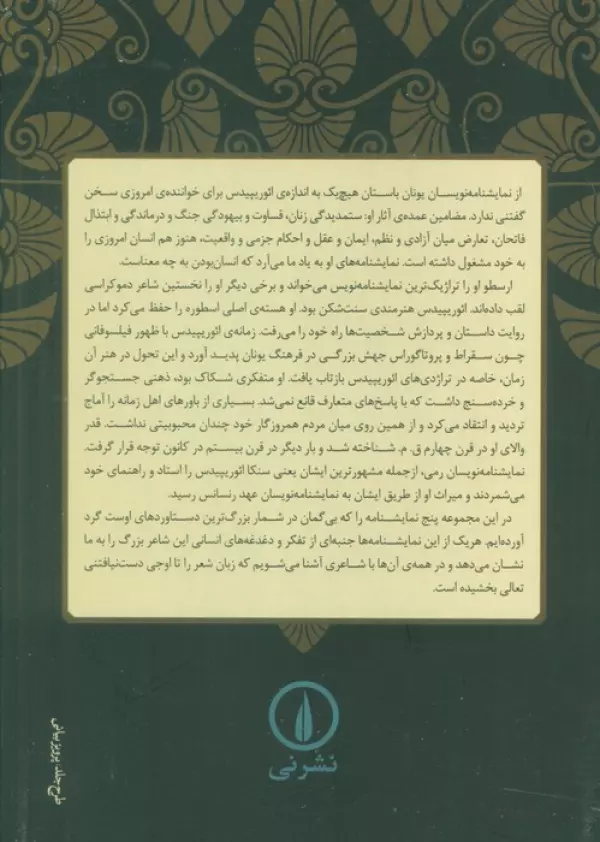 از نمایشنامه‌نویسان یونان باستان هیچ‌یک به اندازه‌ی ائوریپیدس برای خواننده‌ی امروزی سخن
گفتنی ندارد. مضامین عمده‌ی آثار او: ستمدیدگی زنان، قساوت و بیهودگی جنگ و درماندگی و ابتذال
فاتحان، تعارض میان آزادی و نظم، ایمان و عقل و احکام جزمی و واقعیت، هنوز هم انسان امروزی را
به خود مشغول داشته است. نمایشنامه‌های او به یاد ما می‌آرد که انسان‌بودن به چه معناست.
ارسطو او را تراژیک‌ترین نمایشنامه‌نویس می‌خواند و برخی دیگر او را نخستین شاعر دموکراسی
لقب داده‌اند. ائوریپیدس هنرمندی سنت‌شکن بود. او هسته‌ی اصلی اسطوره را حفظ می‌کرد اما در
روایت داستان و پردازش شخصیت‌ها راه خود را می‌رفت. زمانه‌ی ائوریپیدس با ظهور فیلسوفانی
چون سقراط و پروتاگوراس جهش بزرگی در فرهنگ یونان پدید آورد و این تحول در هنر آن
زمان، خاصه در تراژدی‌های ائوریپیدس بازتاب یافت. او متفکری شکاک بود، ذهنی جستجوگر
و خرده‌سنج داشت که با پاسخ‌های متعارف قانع نمی‌شد. بسیاری از باورهای اهل زمانه را آماج
تردید و انتقاد می‌کرد و از همین روی میان مردم همروزگار خود چندان محبوبیتی نداشت. قدر
والای او در قرن چهارم ق. م. شناخته شد و بار دیگر در قرن بیستم در کانون توجه قرار گرفت.
نمایشنامه‌نویسان رمی، ازجمله مشهورترین ایشان یعنی سنکا ائوریپیدس را استاد و راهنمای خود
می‌شمردند و میراث او از طریق ایشان به نمایشنامه‌نویسان عهد رنسانس رسید.
در این مجموعه پنج نمایشنامه را که بی‌گمان در شمار بزرگ‌ترین دستاوردهای اوست گرد
آورده‌ایم. هریک از این نمایشنامه‌ها جنبه‌ای از تفکر و دغدغه‌های انسانی این شاعر بزرگ را به ما
نشان می‌دهد و در همه‌ی آن‌ها با شاعری آشنا می‌شویم که زبان شعر را تا اوجی دست‌نیافتنی
تعالی بخشیده است.
نشرنی
طرح جلد: پرویز بیانی